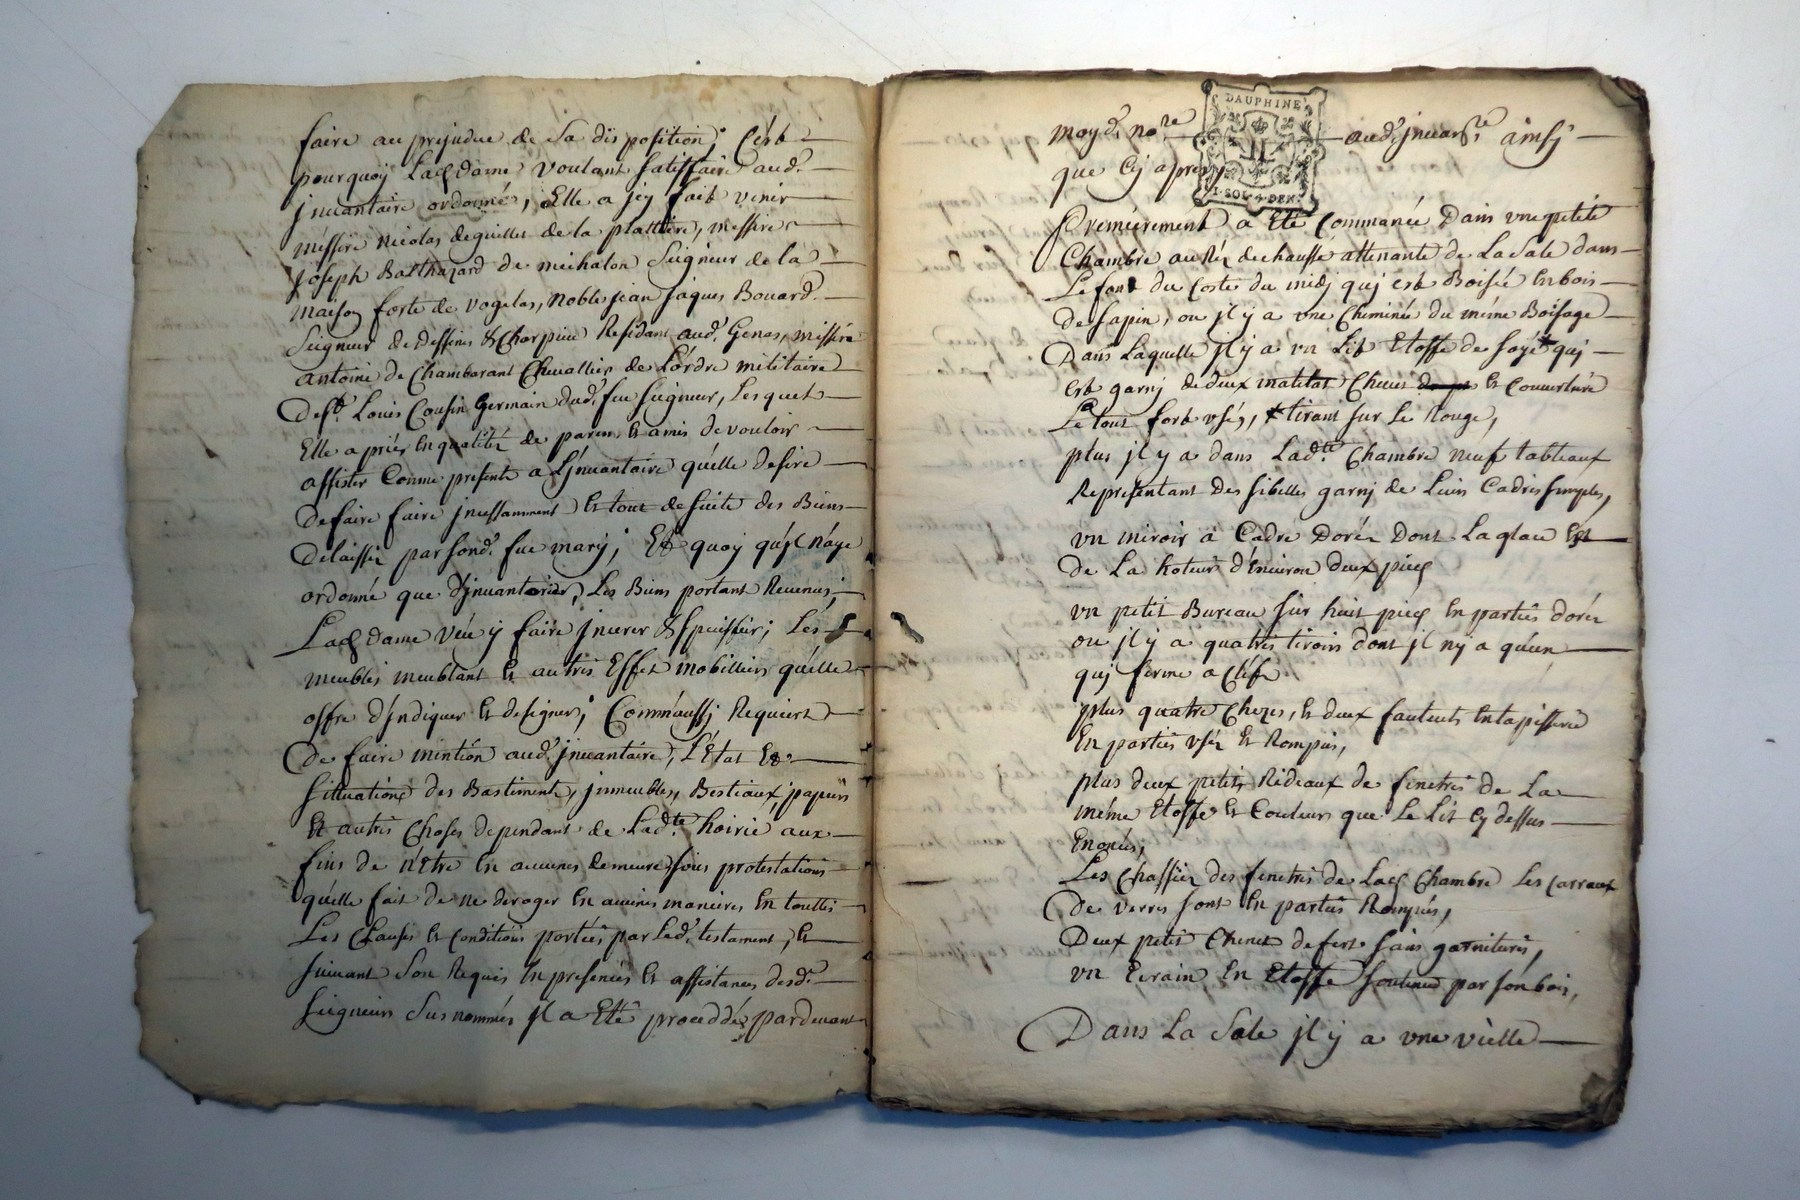 faire au prejudice de sa disposition; C'est
pourquoy Lad dame voulant satisfaire aud.
jnuantaire ordonné, Elle a jcy fait venir
messire Nicolas deguillet de la plattiere, messire
Joseph Balthazard de michalon Seigneur de la
maison forte de vogelas, Nobles jean jaques Bouard
Seigneur de dessines & Charpieu Residant aud. Genas, messire
antoine de Chambarant Chevallier de L'ordre militaire
de St. Louis Cousin Germain dud. feu seigneur, Lesquels
Elle a priés En qualité de parens Et amis de vouloir
assister Comme presents a L'jnuantaire qu'elle desire
de faire faire jncessamment Et tout de suite des Biens
delaissés par sond. feu mary; Et quoy qu'jl n'aye
ordonné que d'jnuantorier, Les Biens portant Revenus,
Lad dame veu y faire jncerer & spessifier; Les
meubles meublant Et autres Effets mobilliers qu'elle
offre d'jndiquer Et designer; Comm'aussj Requiert
de faire mention aud. jnuantaire, L'Etat Et
situations des Bastiments, jmmeubles, Bestiaux, papiers
Et autres Choses dependant de Ladte. hoirie aux
fins de n'Etre En aucunes demeures sous protestations
qu'elle fait de ne deroger En aucunes manieres En touttes
Les Clauses Et Conditions portées par Led. testament, Et
suivant Son Requis En presences Et assistances desd.
seigneurs susnommés jl a Eté proceddés pardevant
moyd. nore. aud. jnuanre. ainsj
que Cy apres
DAUPHINE
1. SOL. 4. DEN.
Premierement a Eté Commancée Dans vne petite
Chambre au Réz de chaussé attenante de La Sale dans
Le font du Costé du midj quj est Boisée En bois
de sapin, ou jl y a vne Cheminée du méme Boisage
Dans Laquelle jl y a vn Lit Etoffe de soye quj
est garnj de deux matelas Et couverture
Le tout fort vsés, tirant sur Le Rouge,
plus jl y a dans Ladte. Chambre neuf tableaux
Representant des sibelles garnj de Leurs Cadres simples,
vn miroir à Cadre Doréz Dont La glace Est
de La hoteur d'Environ deux pieds
vn petit Bureau sur huit pieds En parties doréz
ou jl y a quatres tiroirs dont jl n'y a qu'un
quj ferme a Cléfs
plus quatre Chezes, Et deux fauteuls En tapisserie
En parties vséz Et Rompus,
plus deux petits Rideaux de fenetres de La
méme Etoffe Et Couleurs que Le Lit Cy dessus
Enoncés,
Les Chassiez des fenetres de Lad Chambre Les Carraux
de verres sont En parties Rompués,
Deux petits Chenets de fert sans garnitures,
vn Ecrain En Etoffe soutenue par son bois,
Dans La Sale jl y a vne vielle